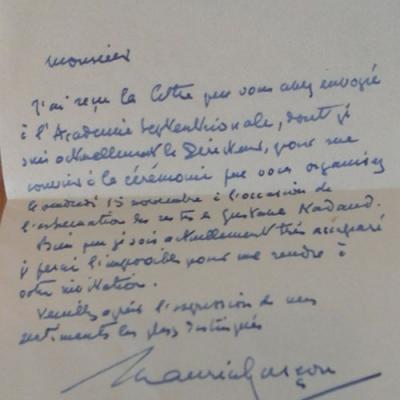 Monsieur
J'ai reçu la lettre que vous avez envoyé
à l'Académie Septentrionale, dont je
suis actuellement le Directeur, pour me
convier à la cérémonie que vous organisez
le vendredi 15 novembre à l'occasion de
l'exhumation des restes de Gustave Nadaud.
Bien que je sois actuellement très accaparé
je ferai l'impossible pour me rendre à
votre invitation.
Veuillez agréer l'expression de mes
sentiments les plus distingués
Maurice Garçon